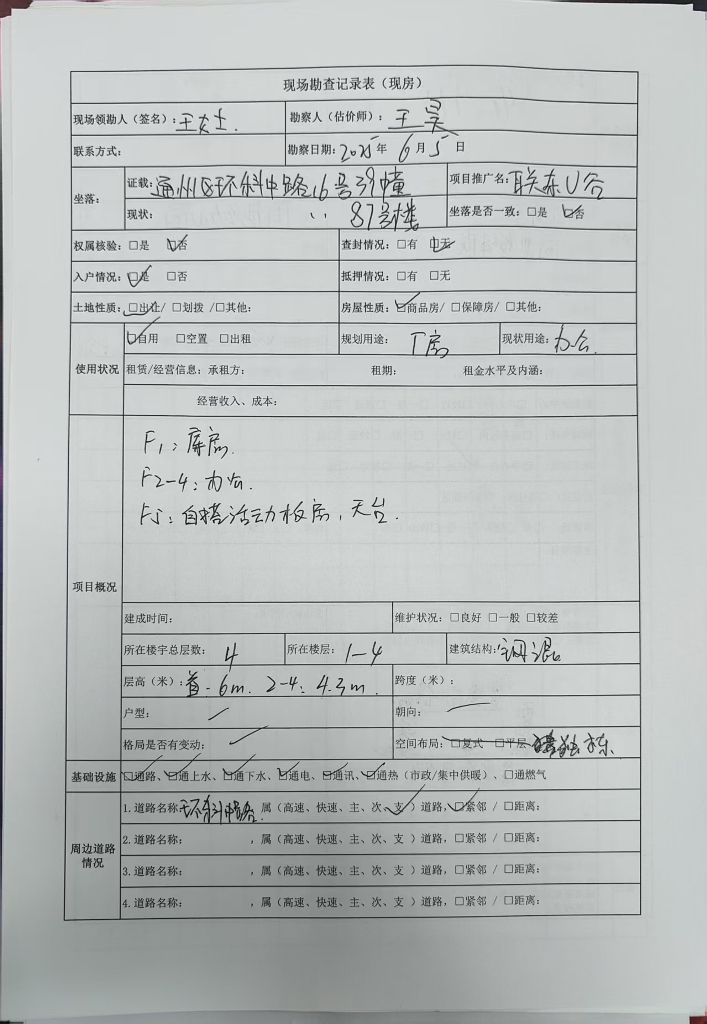 现场勘查记录表（现房）
现场领勘人（签名）：王女士. 勘察人（估价师）：王昊
联系方式： 勘察日期：2025年 6月5日
坐落： 证载：通州区环科中路16号39幢 项目推广名：联东U谷
现状： 〃 87号楼 坐落是否一致：□是 ☑否
权属核验：□是 ☑否 查封情况：□有 ☑无
入户情况：☑是 □否 抵押情况：□有 □无
土地性质：☑出让/ □划拨 /□其他： 房屋性质：☑商品房/ □保障房/ □其他：
使用状况 ☑自用 □空置 □出租 规划用途：厂房 现状用途：办公.
租赁/经营信息：承租方： 租期： 租金水平及内涵：
经营收入、成本：
项目概况
F1：库房.
F2-4：办公.
F5：自搭活动板房，天台.
建成时间： 维护状况：□良好 □一般 □较差
所在楼宇总层数：4 所在楼层：1-4 建筑结构：钢混
层高（米）：首-6m. 2-4：4.3m. 跨度（米）：
户型： 朝向：
格局是否有变动： 空间布局：□复式 □平层 独栋
基础设施 ☑通路、☑通上水、☑通下水、☑通电、☑通讯、☑通热（市政/集中供暖）、□通燃气
周边道路情况 1.道路名称：环科中路，属（高速、快速、主、次、支✓）道路，☑紧邻 / □距离：
2.道路名称： ，属（高速、快速、主、次、支 ）道路，□紧邻 / □距离：
3.道路名称： ，属（高速、快速、主、次、支 ）道路，□紧邻 / □距离：
4.道路名称： ，属（高速、快速、主、次、支 ）道路，□紧邻 / □距离：